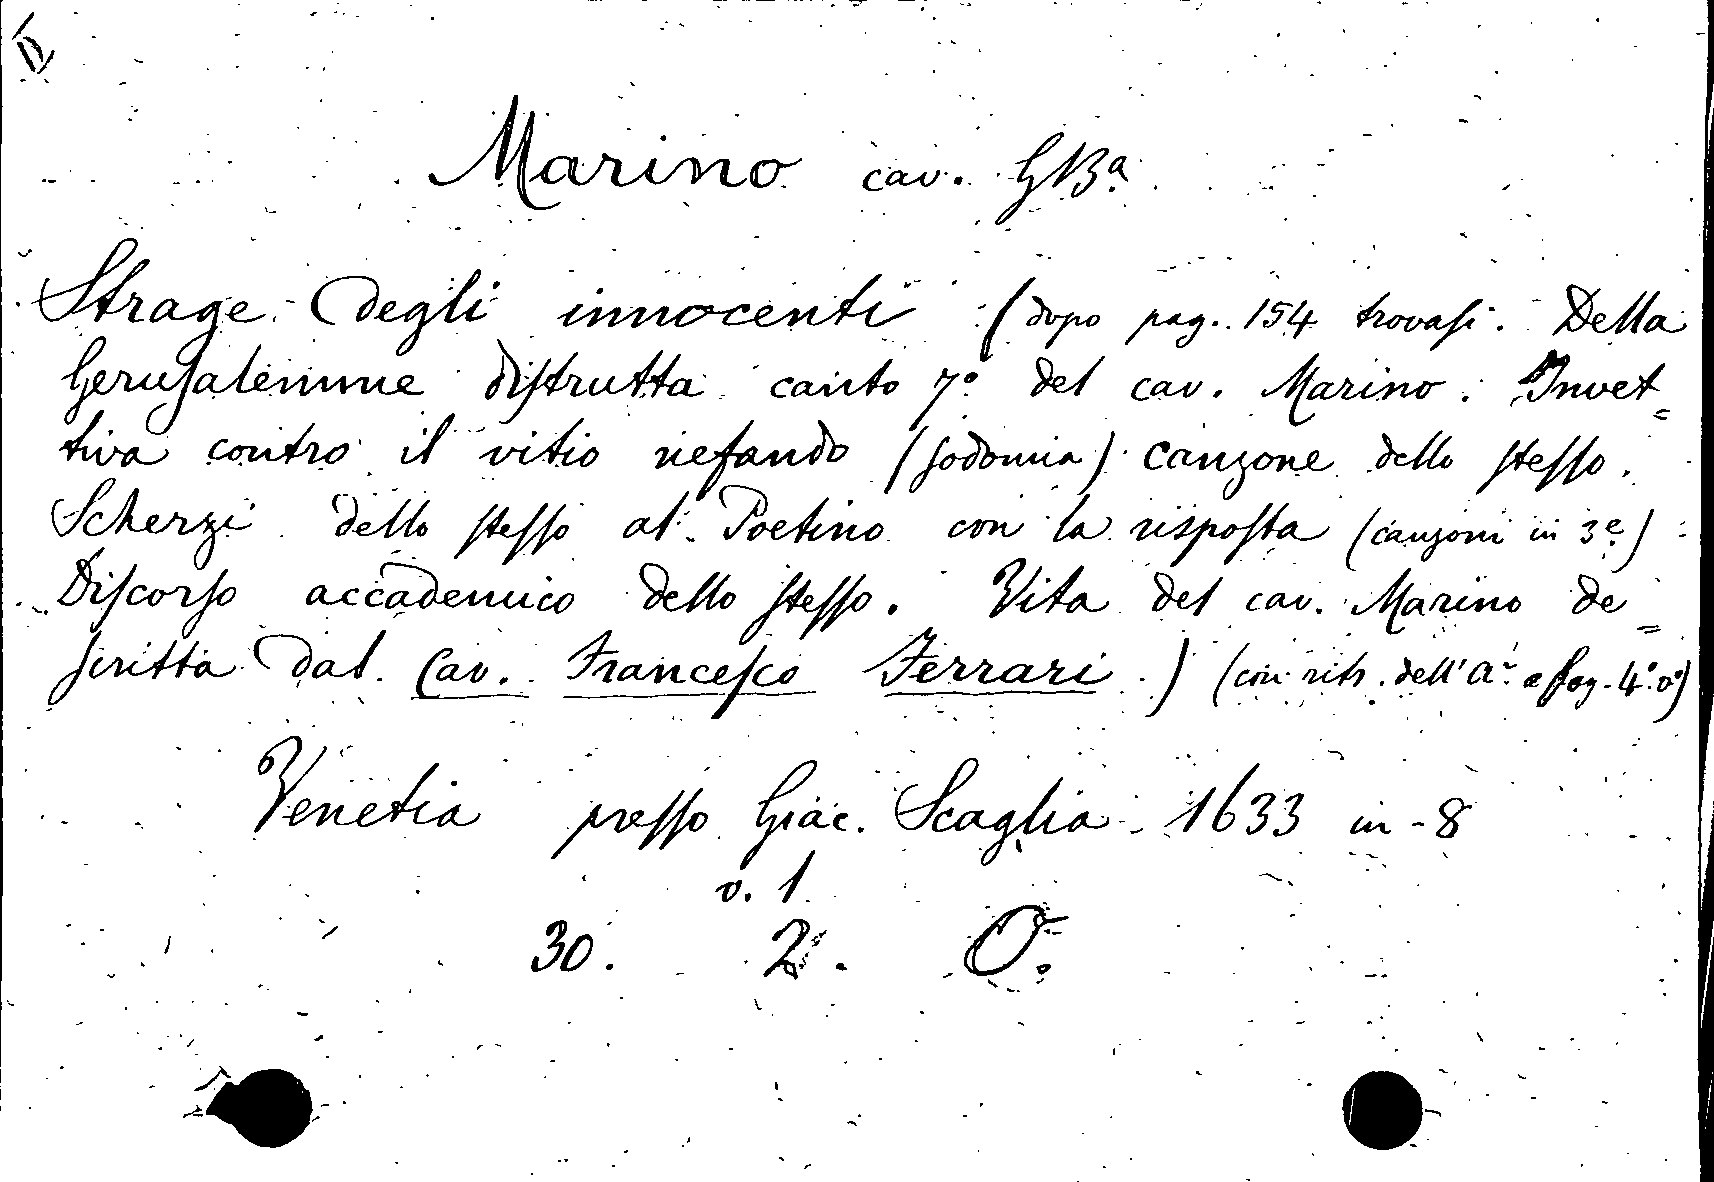 Marino cav. GBa.
Strage degli innocenti (dopo pag. 154 trovasi. Della
Gerusalemme distrutta canto 7º del cav. Marino. Invet=
tiva contro il vitio nefando (sodomia) canzone dello stesso.
Scherzi dello stesso al Poetino con la risposta (canzoni in 3e.)
Discorso accademico dello stesso. Vita del cav. Marino de=
scritta dal Cav. Francesco Ferrari.) (con ritr. dell'a.
Venetia presso Giac. Scaglia 1633 in-8
v. 1
30. 2. O.